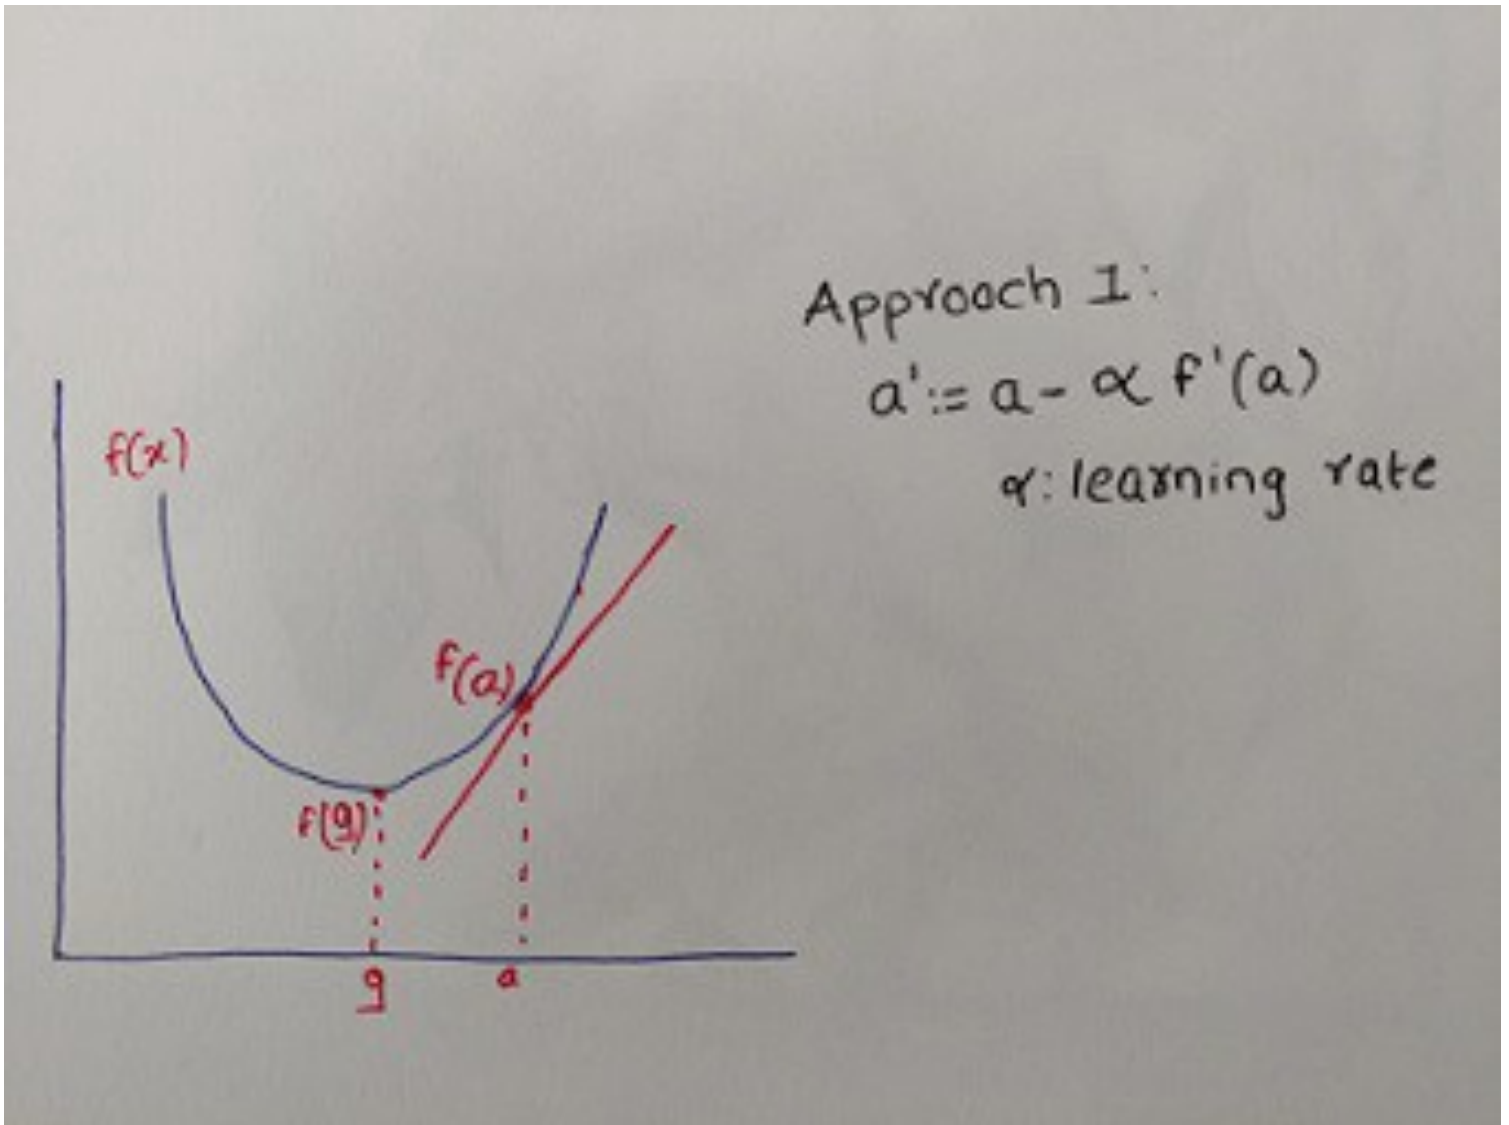 Approach 1:
a' := a - α f'(a)
α: learning rate
f(x)
f(a)
f(g)
g
a